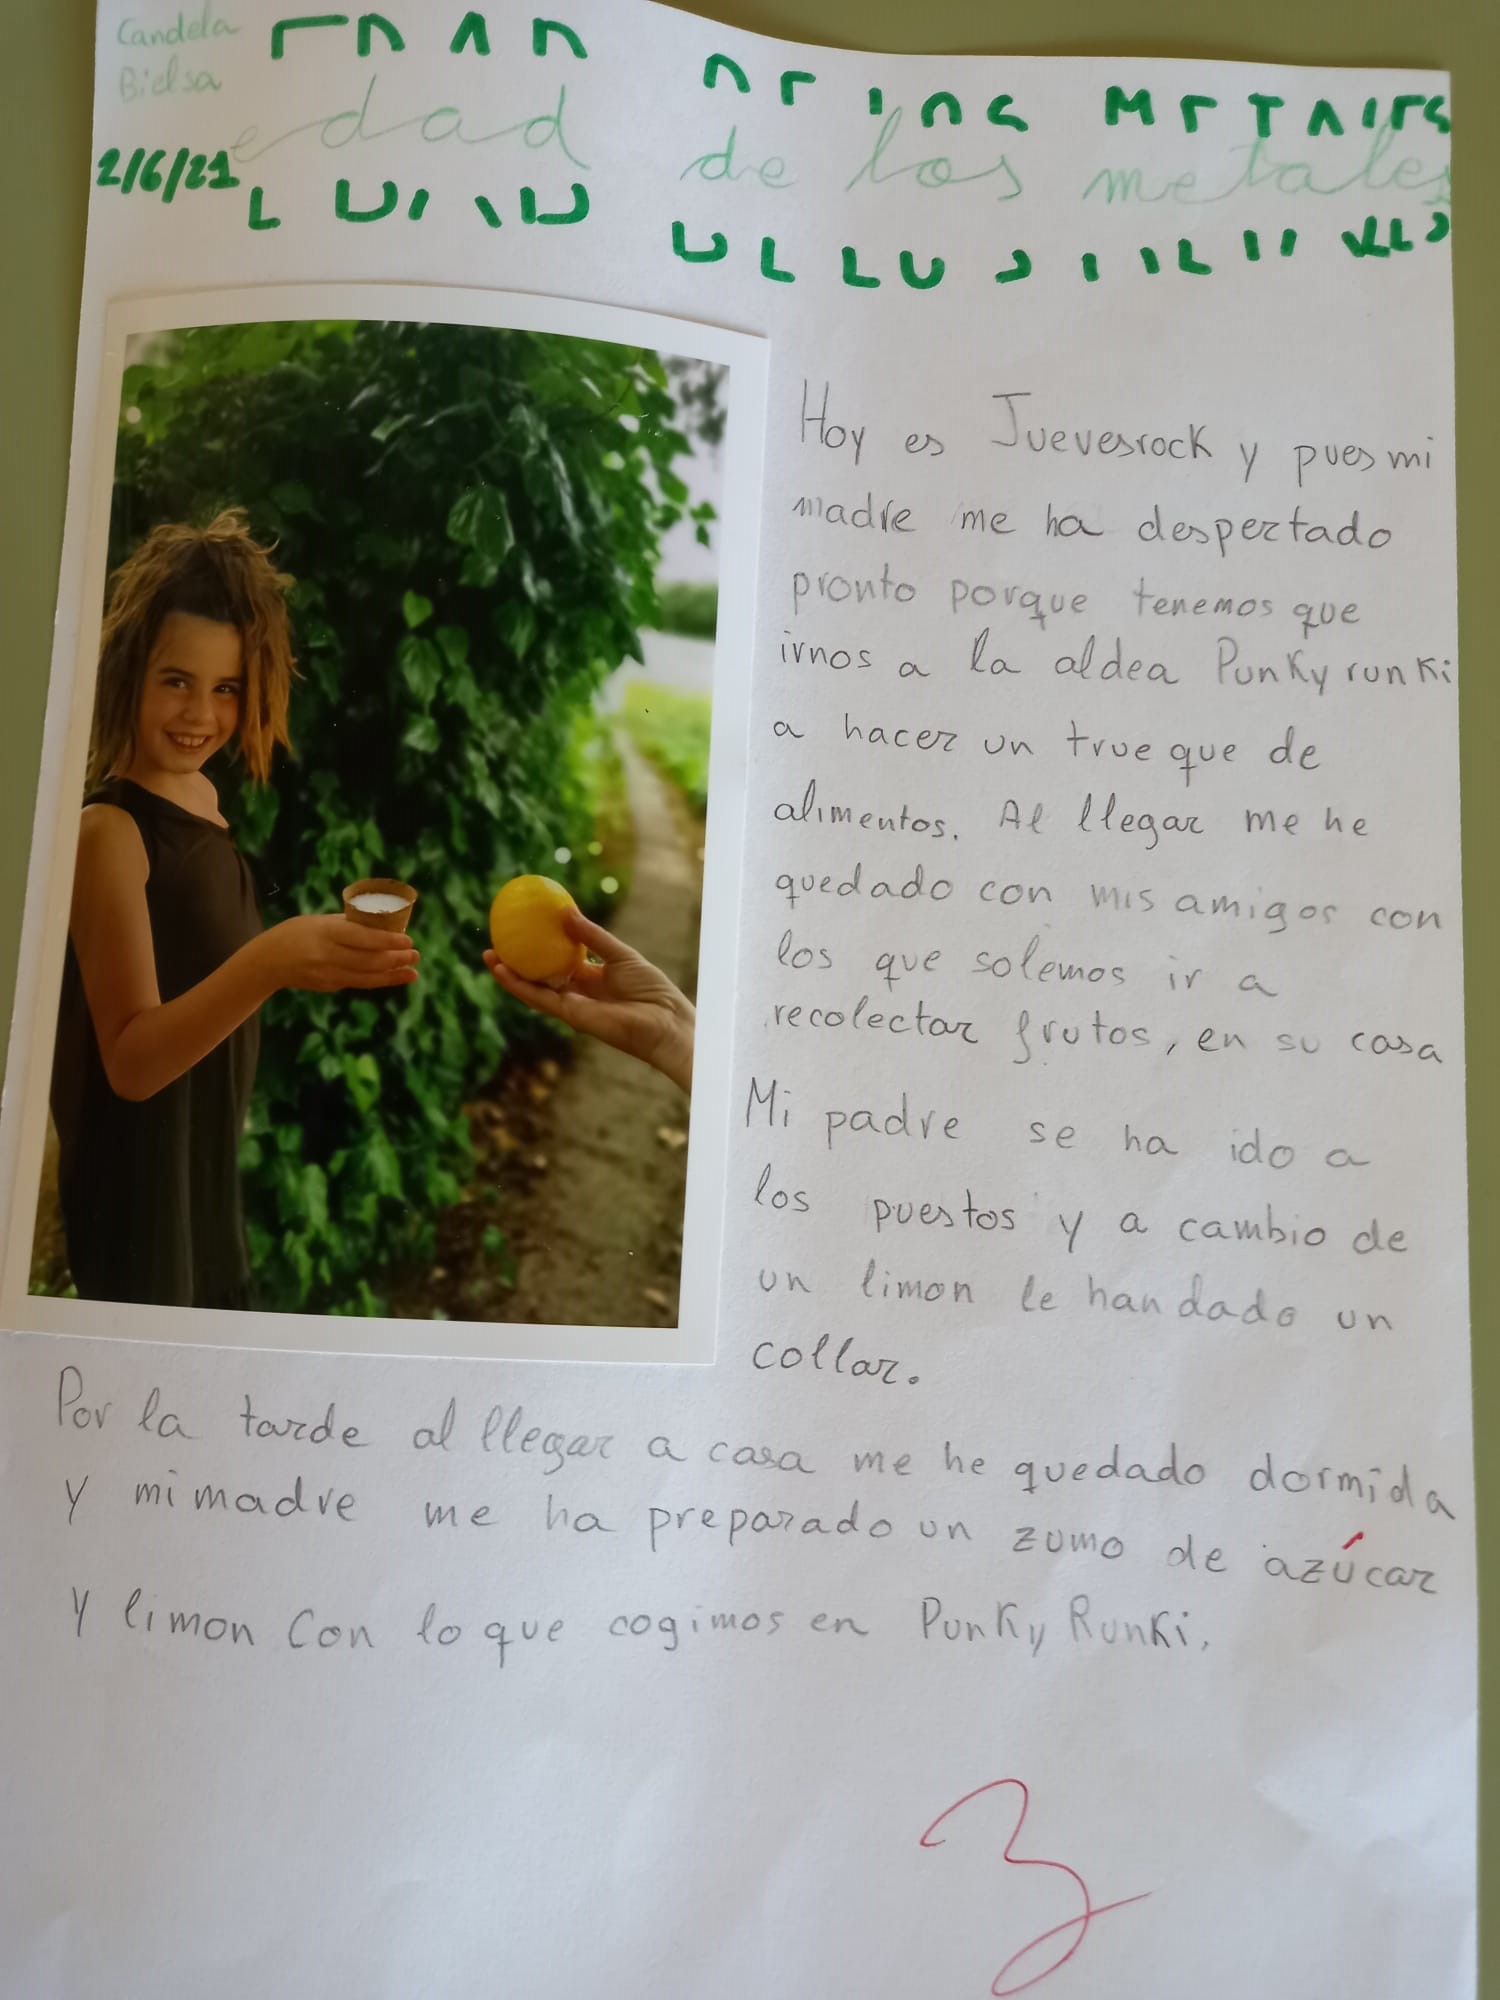 Candela
Bielsa
2/6/21
edad de los metales
Hoy es Juevesrock y pues mi
madre me ha despertado
pronto porque tenemos que
irnos a la aldea Punkyrunki
a hacer un trueque de
alimentos. Al llegar me he
quedado con mis amigos con
los que solemos ir a
recolectar frutos, en su casa
Mi padre se ha ido a
los puestos y a cambio de
un limon le han dado un
collar.
Por la tarde al llegar a casa me he quedado dormida
y mi madre me ha preparado un zumo de azúcar
y limon con lo que cogimos en Punky Runki.